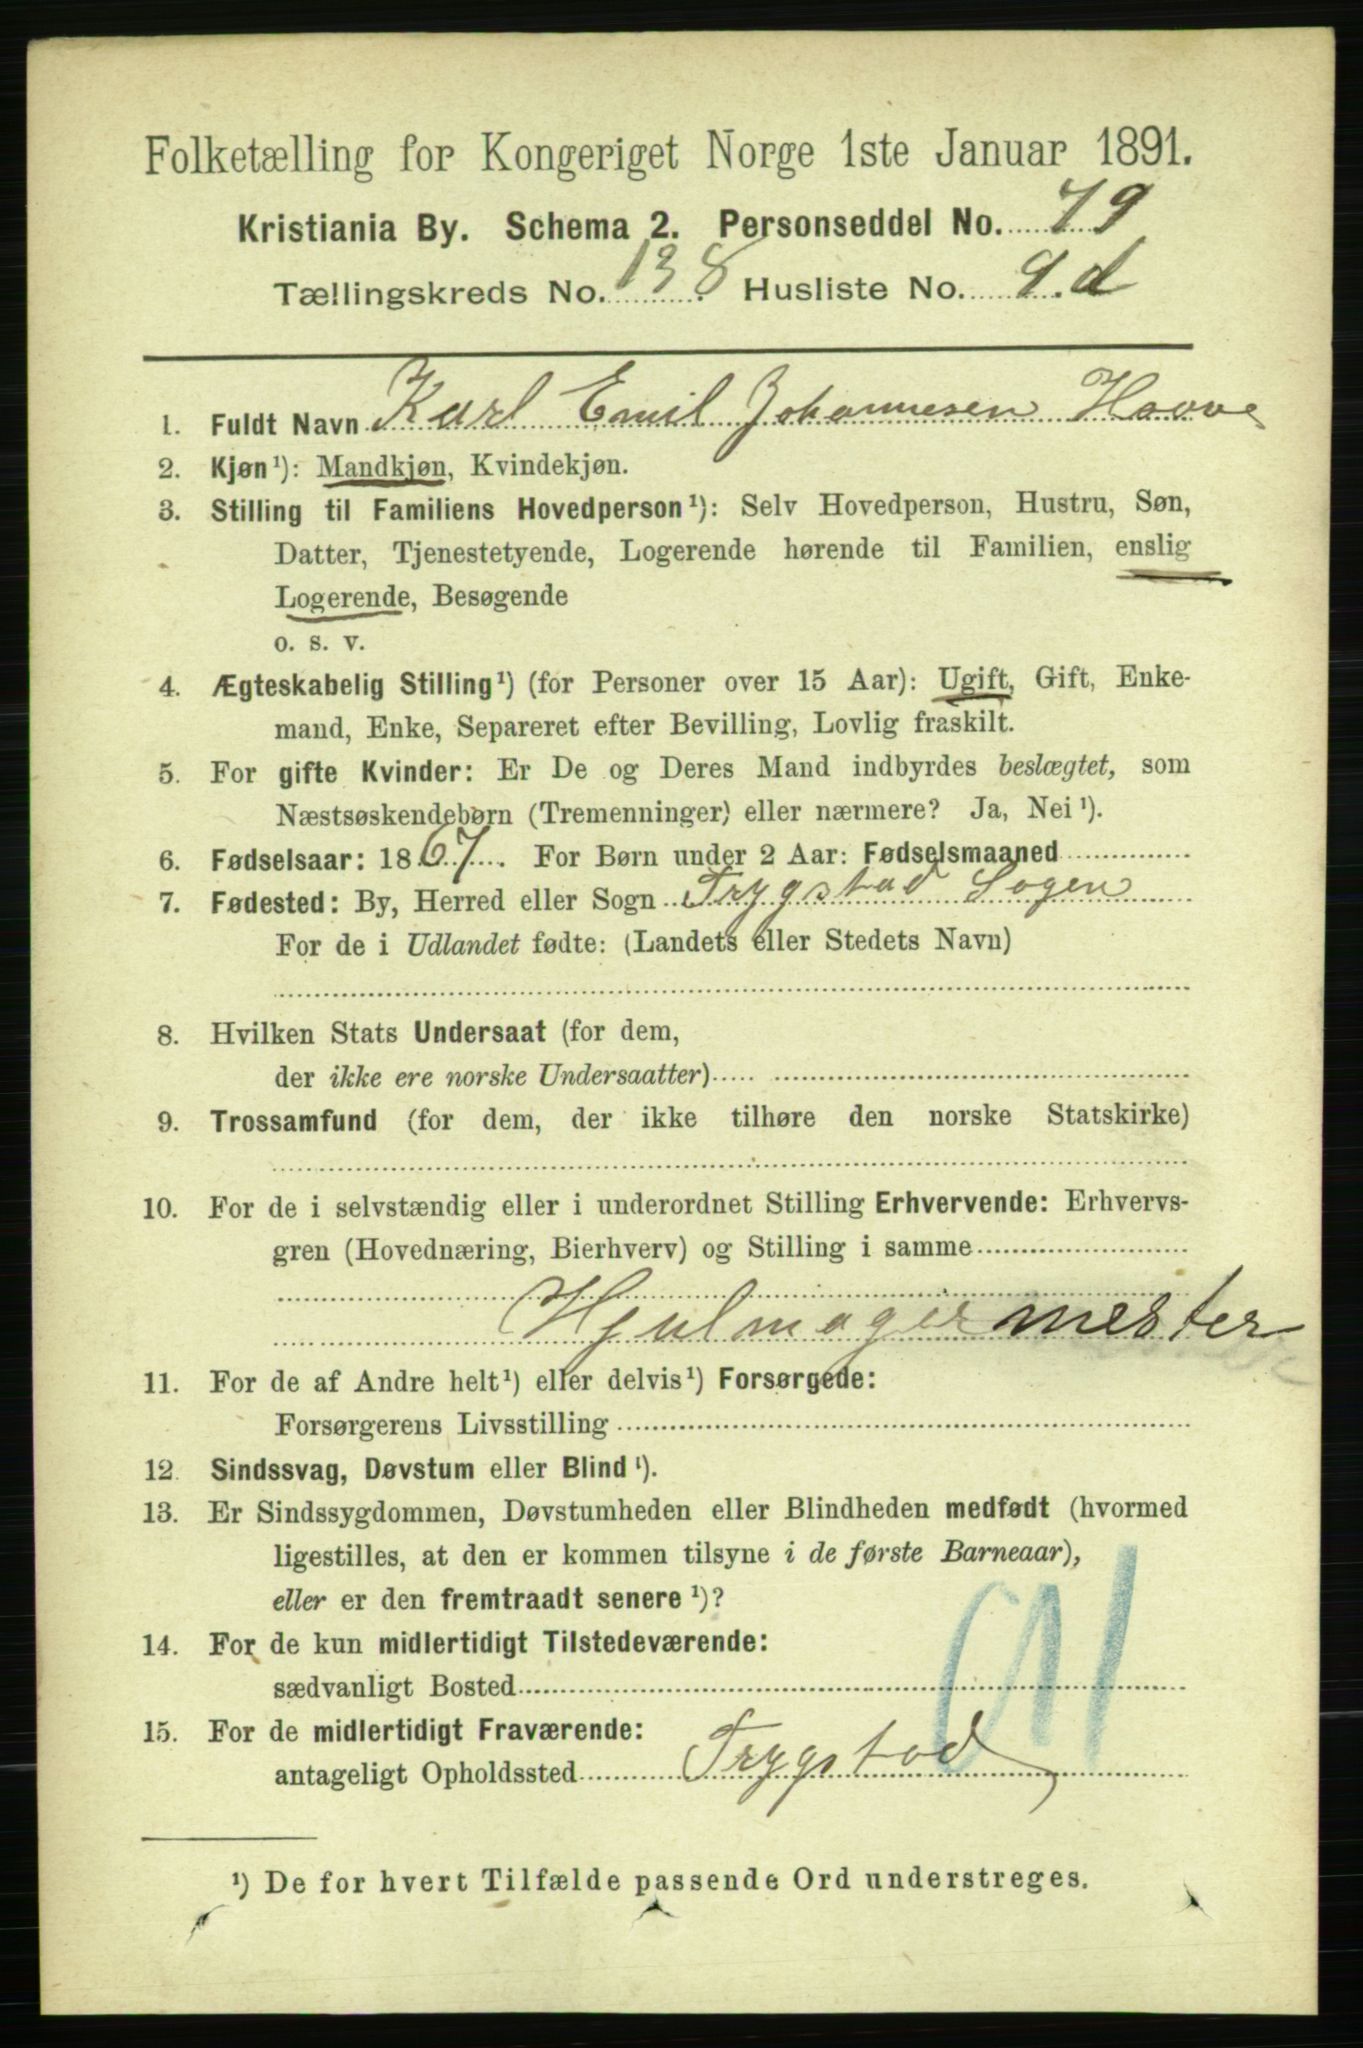 Folketælling for Kongeriget Norge 1ste Januar 1891.
Kristiania By. Schema 2. Personseddel No. 79
Tællingskreds No. 138 Husliste No. 9.d
1. Fuldt Navn Karl Emil Johannesen Haave
2. Kjøn¹): Mandkjøn, Kvindekjøn.
3. Stilling til Familiens Hovedperson¹): Selv Hovedperson, Hustru, Søn,
Datter, Tjenestetyende, Logerende hørende til Familien, enslig
Logerende, Besøgende
o. s. v.
4. Ægteskabelig Stilling¹) (for Personer over 15 Aar): Ugift, Gift, Enke-
mand, Enke, Separeret efter Bevilling, Lovlig fraskilt.
5. For gifte Kvinder: Er De og Deres Mand indbyrdes beslægtet, som
Næstsøskendebørn (Tremenninger) eller nærmere? Ja, Nei¹).
6. Fødselsaar: 1867. For Børn under 2 Aar: Fødselsmaaned
7. Fødested: By, Herred eller Sogn Trygstad Sogen
For de i Udlandet fødte: (Landets eller Stedets Navn)
8. Hvilken Stats Undersaat (for dem,
der ikke ere norske Undersaatter)
9. Trossamfund (for dem, der ikke tilhøre den norske Statskirke)
10. For de i selvstændig eller i underordnet Stilling Erhvervende: Erhvervs-
gren (Hovednæring, Bierhverv) og Stilling i samme
Hjulmagermester
11. For de af Andre helt¹) eller delvis¹) Forsørgede:
Forsørgerens Livsstilling
12. Sindssvag, Døvstum eller Blind¹).
13. Er Sindssygdommen, Døvstumheden eller Blindheden medfødt (hvormed
ligestilles, at den er kommen tilsyne i de første Barneaar),
eller er den fremtraadt senere¹)?
14. For de kun midlertidigt Tilstedeværende:
sædvanligt Bosted
15. For de midlertidigt Fraværende:
antageligt Opholdssted Trygstad
¹) De for hvert Tilfælde passende Ord understreges.